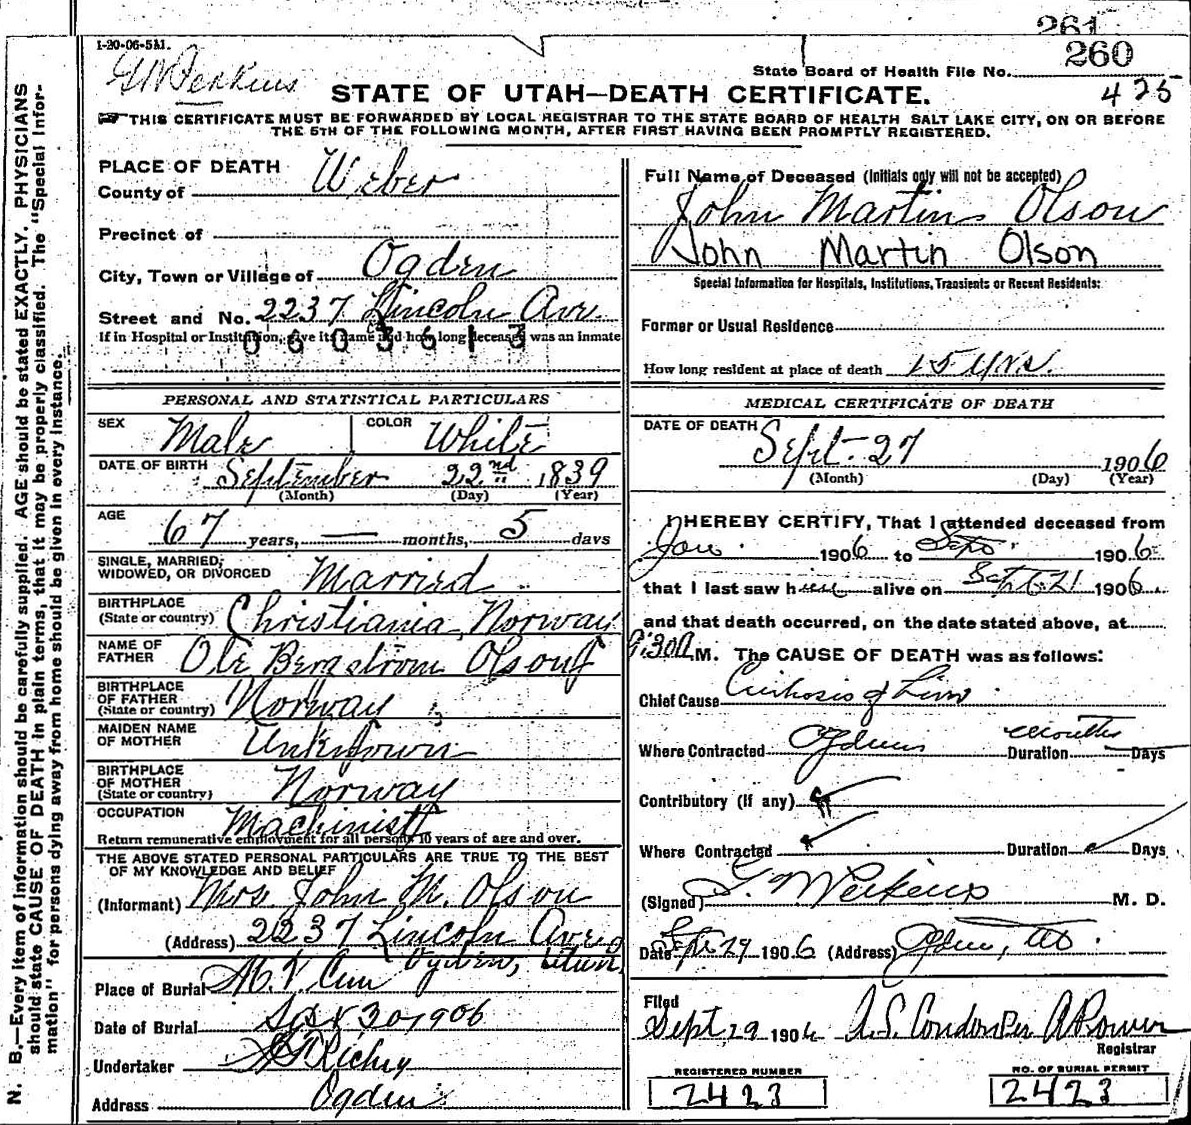 261
1-20-06-5M.
260
State Board of Health File No.
425
STATE OF UTAH—DEATH CERTIFICATE.
THIS CERTIFICATE MUST BE FORWARDED BY LOCAL REGISTRAR TO THE STATE BOARD OF HEALTH SALT LAKE CITY, ON OR BEFORE
THE 5TH OF THE FOLLOWING MONTH, AFTER FIRST HAVING BEEN PROMPTLY REGISTERED.
N. B.—Every item of information should be carefully supplied. AGE should be stated EXACTLY. PHYSICIANS
should state CAUSE OF DEATH in plain terms, that it may be properly classified. The "Special Infor-
mation" for persons dying away from home should be given in every instance.
PLACE OF DEATH
County of Weber
Precinct of
City, Town or Village of Ogden
Street and No. 2237 Lincoln Ave.
If in Hospital or Institution, give its name and how long deceased was an inmate
0603613
PERSONAL AND STATISTICAL PARTICULARS
SEX Male COLOR White
DATE OF BIRTH September 22nd 1839
(Month) (Day) (Year)
AGE
67 years, — months, 5 days
SINGLE, MARRIED,
WIDOWED, OR DIVORCED Married
BIRTHPLACE
(State or country) Christiania, Norway
NAME OF
FATHER Ole Bergstrom Olson
BIRTHPLACE
OF FATHER
(State or country) Norway
MAIDEN NAME
OF MOTHER Unknown
BIRTHPLACE
OF MOTHER
(State or country) Norway
OCCUPATION Machinist
Return remunerative employment for all persons 10 years of age and over.
THE ABOVE STATED PERSONAL PARTICULARS ARE TRUE TO THE BEST
OF MY KNOWLEDGE AND BELIEF
(Informant) Mrs. John M. Olson
(Address) 2237 Lincoln Ave
Ogden, Utah
Place of Burial Mt Cem
Date of Burial Sept 30 1906
Undertaker Richey
Address Ogden
Full Name of Deceased (Initials only will not be accepted)
John Martin Olson
John Martin Olson
Special Information for Hospitals, Institutions, Transients or Recent Residents:
Former or Usual Residence
How long resident at place of death 15 yrs.
MEDICAL CERTIFICATE OF DEATH
DATE OF DEATH Sept- 27 1906
(Month) (Day) (Year)
I HEREBY CERTIFY, That I attended deceased from
Jan. 1906 to Sept. 1906
that I last saw him alive on Sept 21 1906
and that death occurred, on the date stated above, at
9:30 A M. The CAUSE OF DEATH was as follows:
Chief Cause Cirrhosis of Liver
Where Contracted Ogden Duration months Days
Contributory (If any)
Where Contracted Duration Days
(Signed) G. W Perkins M. D.
Date Sept 29 1906 (Address) Ogden, Ut.
Filed
Sept 29 1906
Registrar
REGISTERED NUMBER
2423
NO. OF BURIAL PERMIT
2423